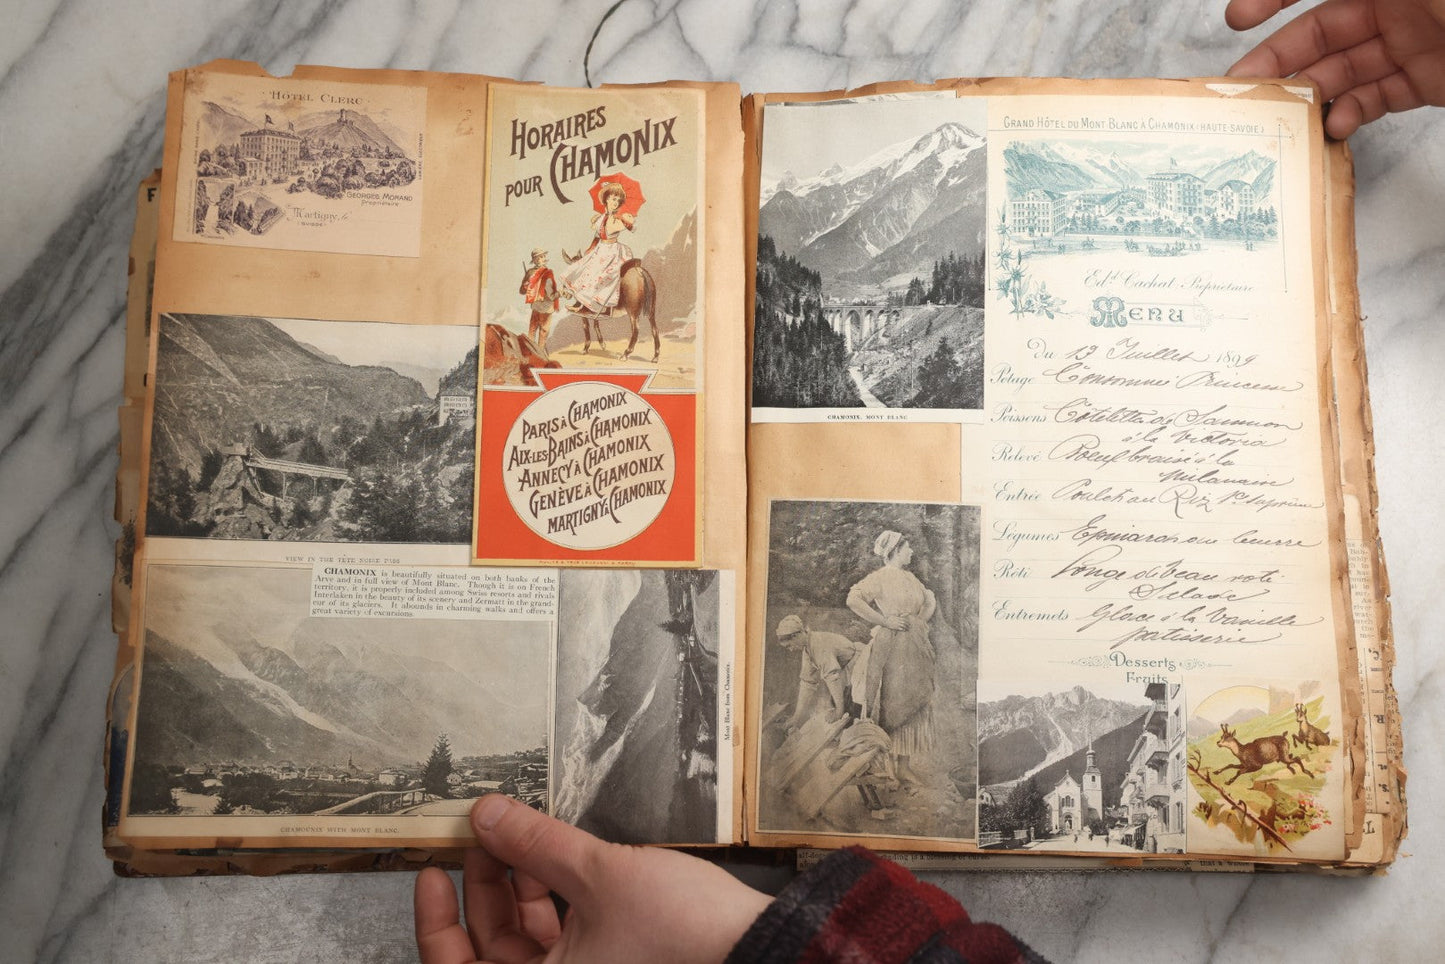 HÔTEL CLERC
GEORGES MORAND
Propriétaire
Martigny, le
(SUISSE)
HORAIRES
POUR CHAMONIX
PARIS À CHAMONIX
AIX-LES-BAINS À CHAMONIX
ANNECY À CHAMONIX
GENÈVE À CHAMONIX
MARTIGNY À CHAMONIX
VIEW IN THE TÊTE NOIRE PASS
CHAMONIX is beautifully situated on both banks of the
Arve and in full view of Mont Blanc. Though it is on French
territory, it is properly included among Swiss resorts and rivals
Interlaken in the beauty of its scenery and Zermatt in the grand-
eur of its glaciers. It abounds in charming walks and offers a
great variety of excursions.
CHAMOUNIX WITH MONT BLANC.
Mont Blanc from Chamonix.
CHAMONIX, MONT BLANC
GRAND HÔTEL DU MONT BLANC À CHAMONIX (HAUTE-SAVOIE)
Ed.d Cachat, Propriétaire
MENU
Du 13 Juillet 1899
Potage Consommé Princesse
Poissons Côtelettes de Saumon
à la Victoria
Relevé Boeuf braisé à la
Milanaise
Entrée Poulet au Riz Sce suprême
Légumes Epinards au beurre
Rôti Longe de Veau rôti
Salade
Entremets Glace à la Vanille
patisserie
Desserts
Fruits